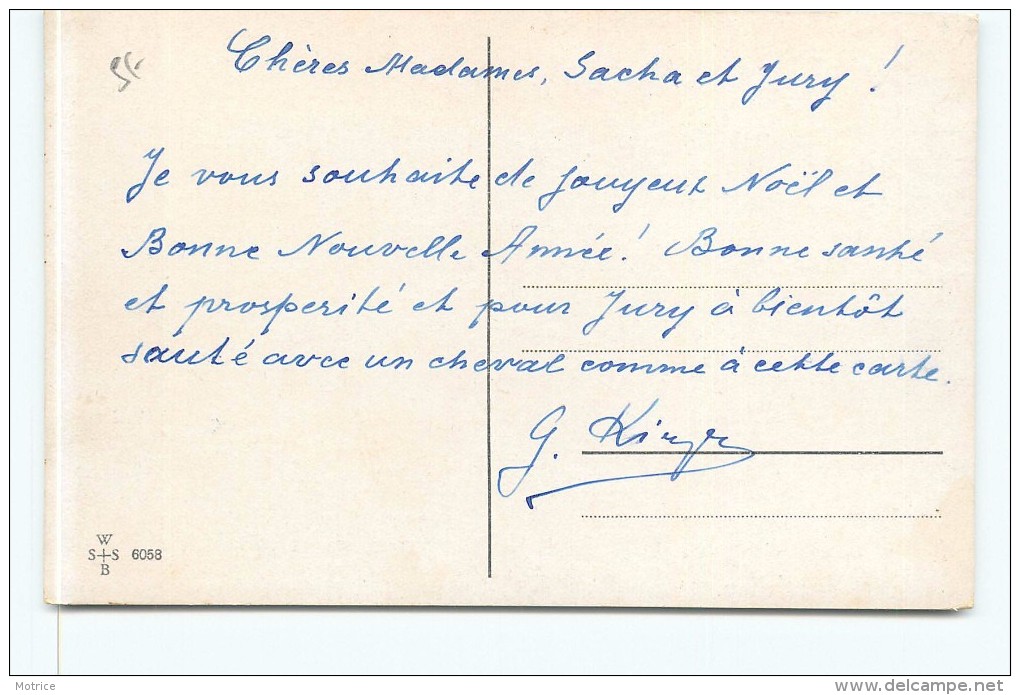 Chères Madames, Sacha et Jury !
Je vous souhaite de Jouyeux Noël et
Bonne Nouvelle Année! Bonne santé
et prosperité et pour Jury à bientôt
sauté avec un cheval comme à cette carte.
G.
W
S+S 6058
B
Motrice
http://www.delcampe.net